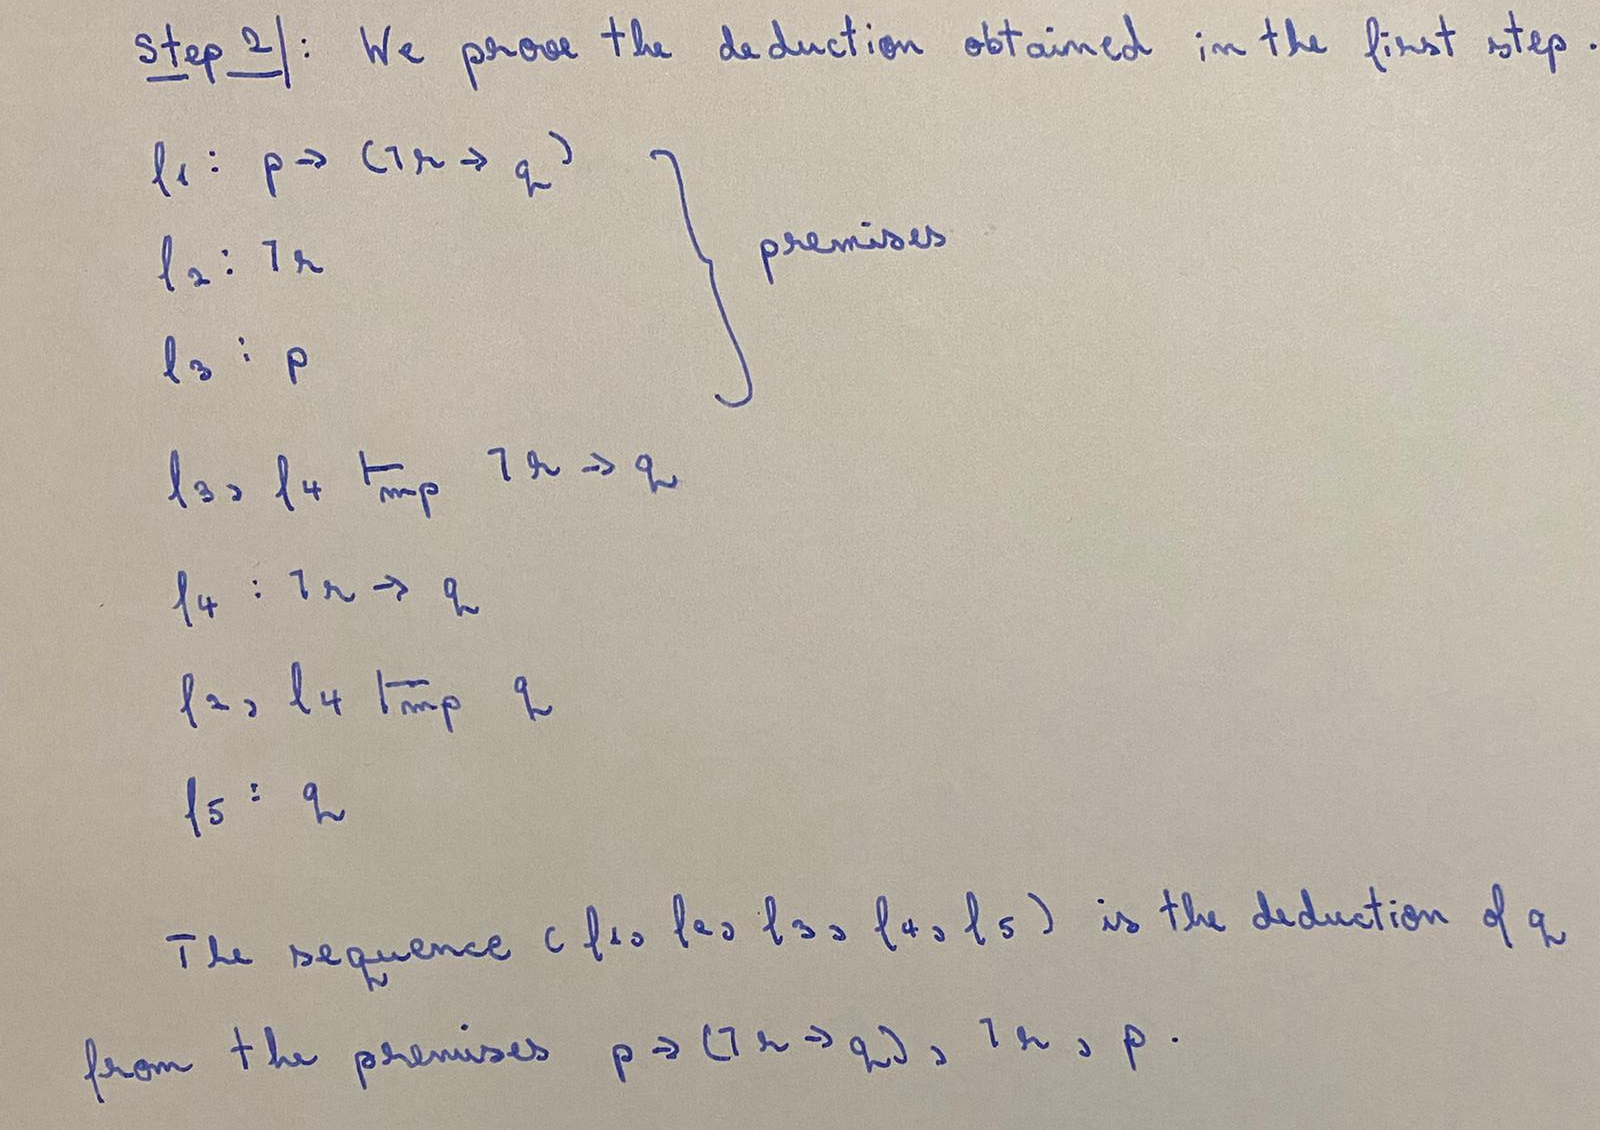 Step 2/: We prove the deduction obtained in the first step.
f1: p → (¬r → q)
f2: ¬r
premises
f3: p
f3, f4 ⊢mp ¬r → q
f4: ¬r → q
f2, f4 ⊢mp q
f5: q
The sequence (f1, f2, f3, f4, f5) is the deduction of q
from the premises p → (¬r → q), ¬r, p.